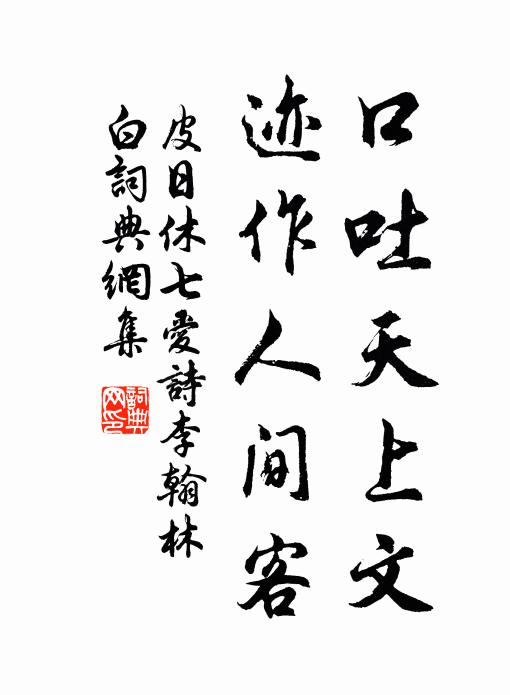 口吐天上文
迹作人间客
皮日休七愛詩李翰林
白詞典網集
詞典网印